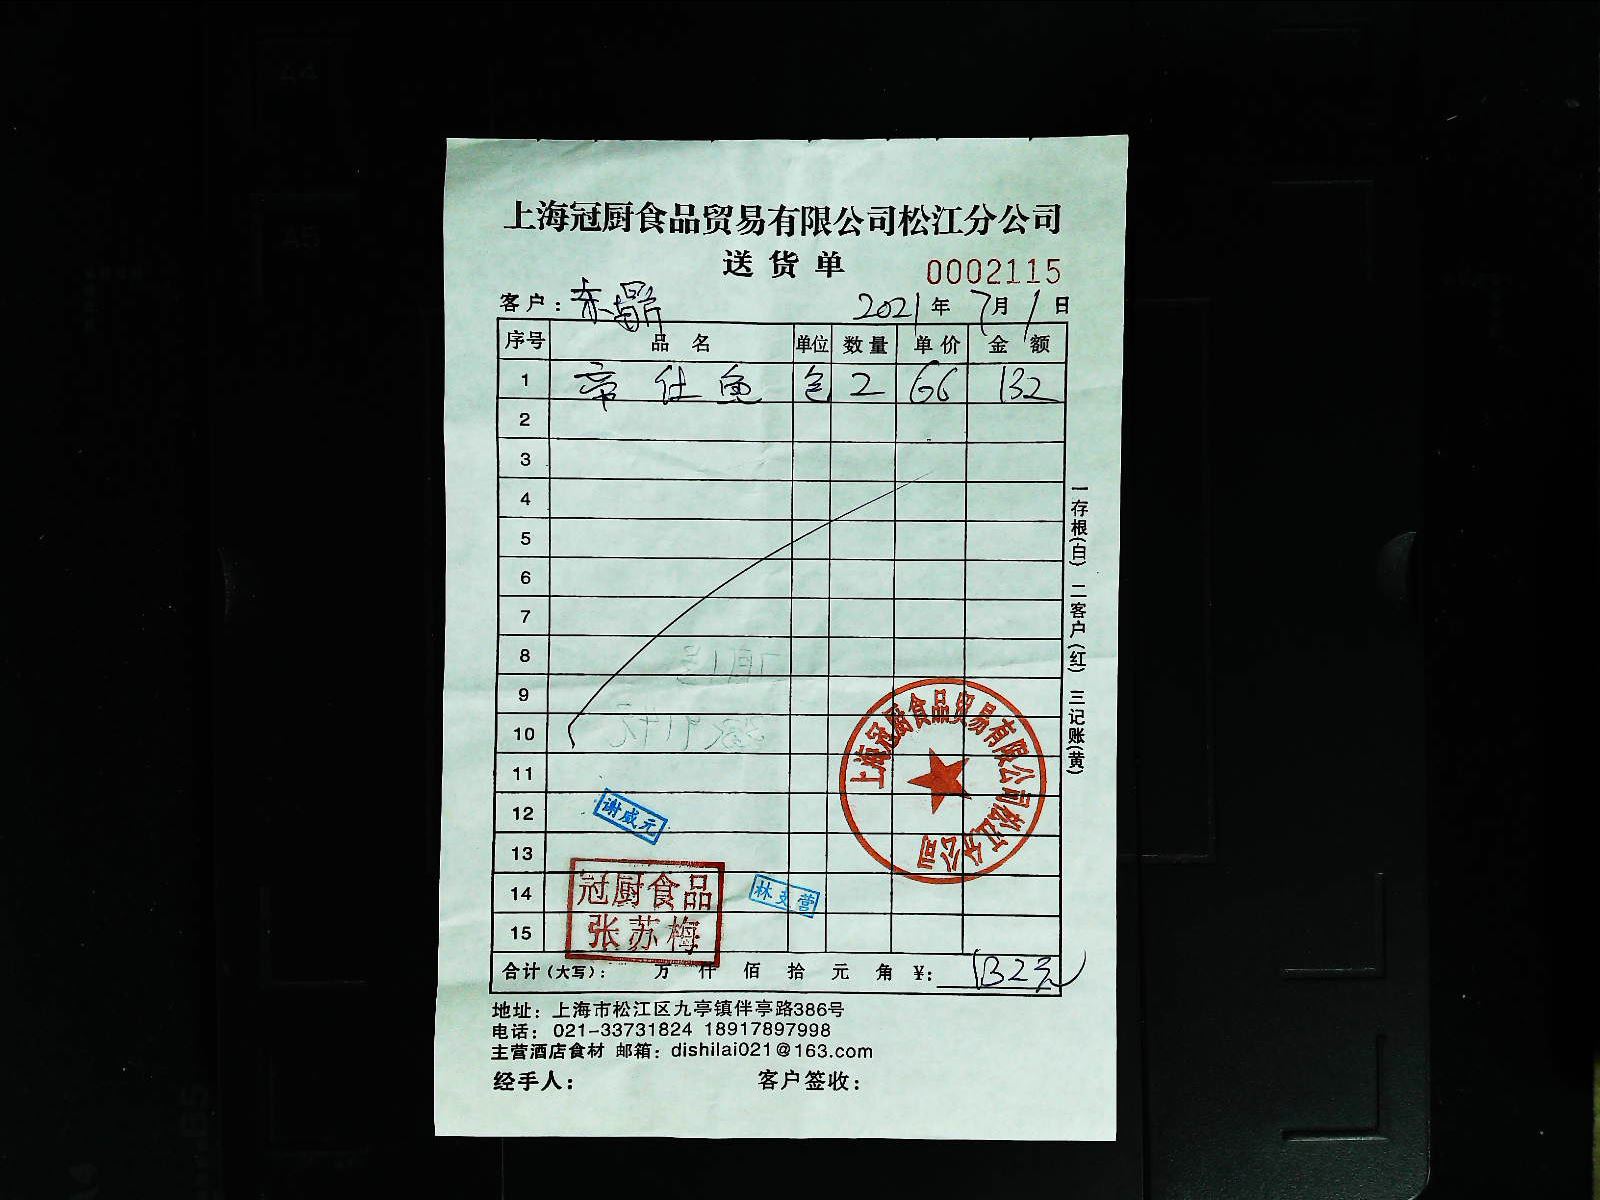 上海冠厨食品贸易有限公司松江分公司
送货单 0002115
客户： 2021年7月1日
序号 品名 单位 数量 单价 金额
1 帝仕鱼 包 2 66 132
2
3
4
5
6
7
8
9
10
11
12
13
14
15
一存根(白) 二客户(红) 三记账(黄)
上海冠厨食品贸易有限公司松江分公司
谢咸元
冠厨食品
张苏梅
林支营
合计(大写)： 万 仟 佰 拾 元 角 ¥：132元
地址：上海市松江区九亭镇伴亭路386号
电话：021-33731824 18917897998
主营酒店食材 邮箱：dishilai021@163.com
经手人： 客户签收：